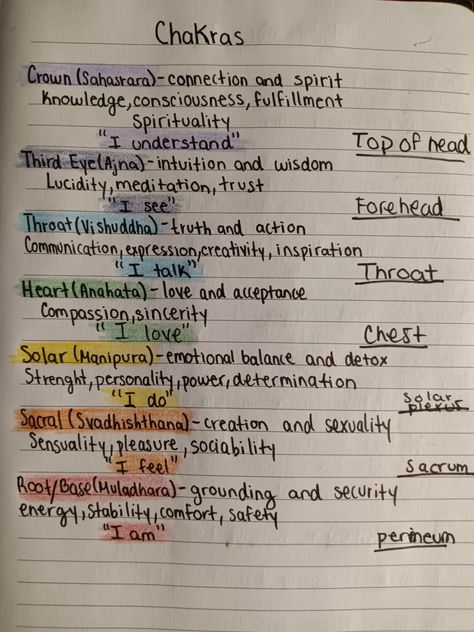 Chakras
Crown (Sahasrara) - connection and spirit
Knowledge, consciousness, fulfillment
Spirituality
"I understand"
Top of head
Third Eye (Ajna) - intuition and wisdom
Lucidity, meditation, trust
"I see"
Forehead
Throat (Vishuddha) - truth and action
Communication, expression, creativity, inspiration
"I talk"
Throat
Heart (Anahata) - love and acceptance
Compassion, sincerity
"I love"
Chest
Solar (Manipura) - emotional balance and detox
Strenght, personality, power, determination
"I do"
Solar
plexus
Sacral (Svadhishthana) - creation and sexuality
Sensuality, pleasure, sociability
"I feel"
Sacrum
Root/Base (Muladhara) - grounding and security
energy, stability, comfort, safety
"I am"
perineum